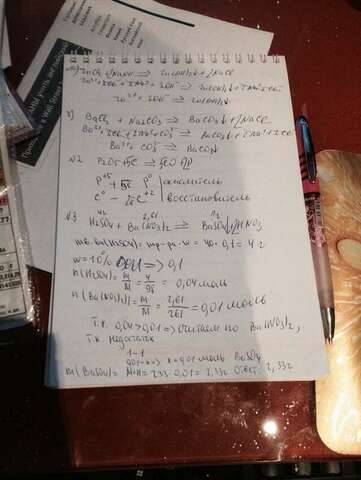 а) ZnCl₂ + 2NaOH => Zn(OH)₂↓ + 2NaCl
Zn²⁺ + 2Cl⁻ + 2Na⁺ + 2OH⁻ => Zn(OH)₂↓ + 2Na⁺ + 2Cl⁻
Zn²⁺ + 2OH⁻ => Zn(OH)₂↓
BaCl₂ + Na₂CO₃ => BaCO₃↓ + 2NaCl
Ba²⁺ + 2Cl⁻ + 2Na⁺ + CO₃²⁻ => BaCO₃↓ + 2Na⁺ + 2Cl⁻
Ba²⁺ + CO₃²⁻ => BaCO₃↓
№2 P₂O₅ + 5C => 5CO + 2P
P⁺⁵ + 5e P⁰ | окислитель
C⁰ - 2e C⁺² | восстановитель
№3 H₂SO₄ + Ba(NO₃)₂ => BaSO₄ + 2HNO₃
m в-ва(H₂SO₄) = mр-ра · w = 40 · 0,1 = 4 г
w = 10% => 0,1
n(H₂SO₄) = m/M = 4/98 = 0,04 моль
n(Ba(NO₃)₂) = m/M = 2,61/261 = 0,01 моль
Т.к. 0,04 > 0,01 => считаем по Ba(NO₃)₂,
т.к недостаток
1 - 1
0,01 - x => x = 0,01 моль BaSO₄
m(BaSO₄) = M·n = 233 · 0,01 = 2,33г Ответ: 2,33г